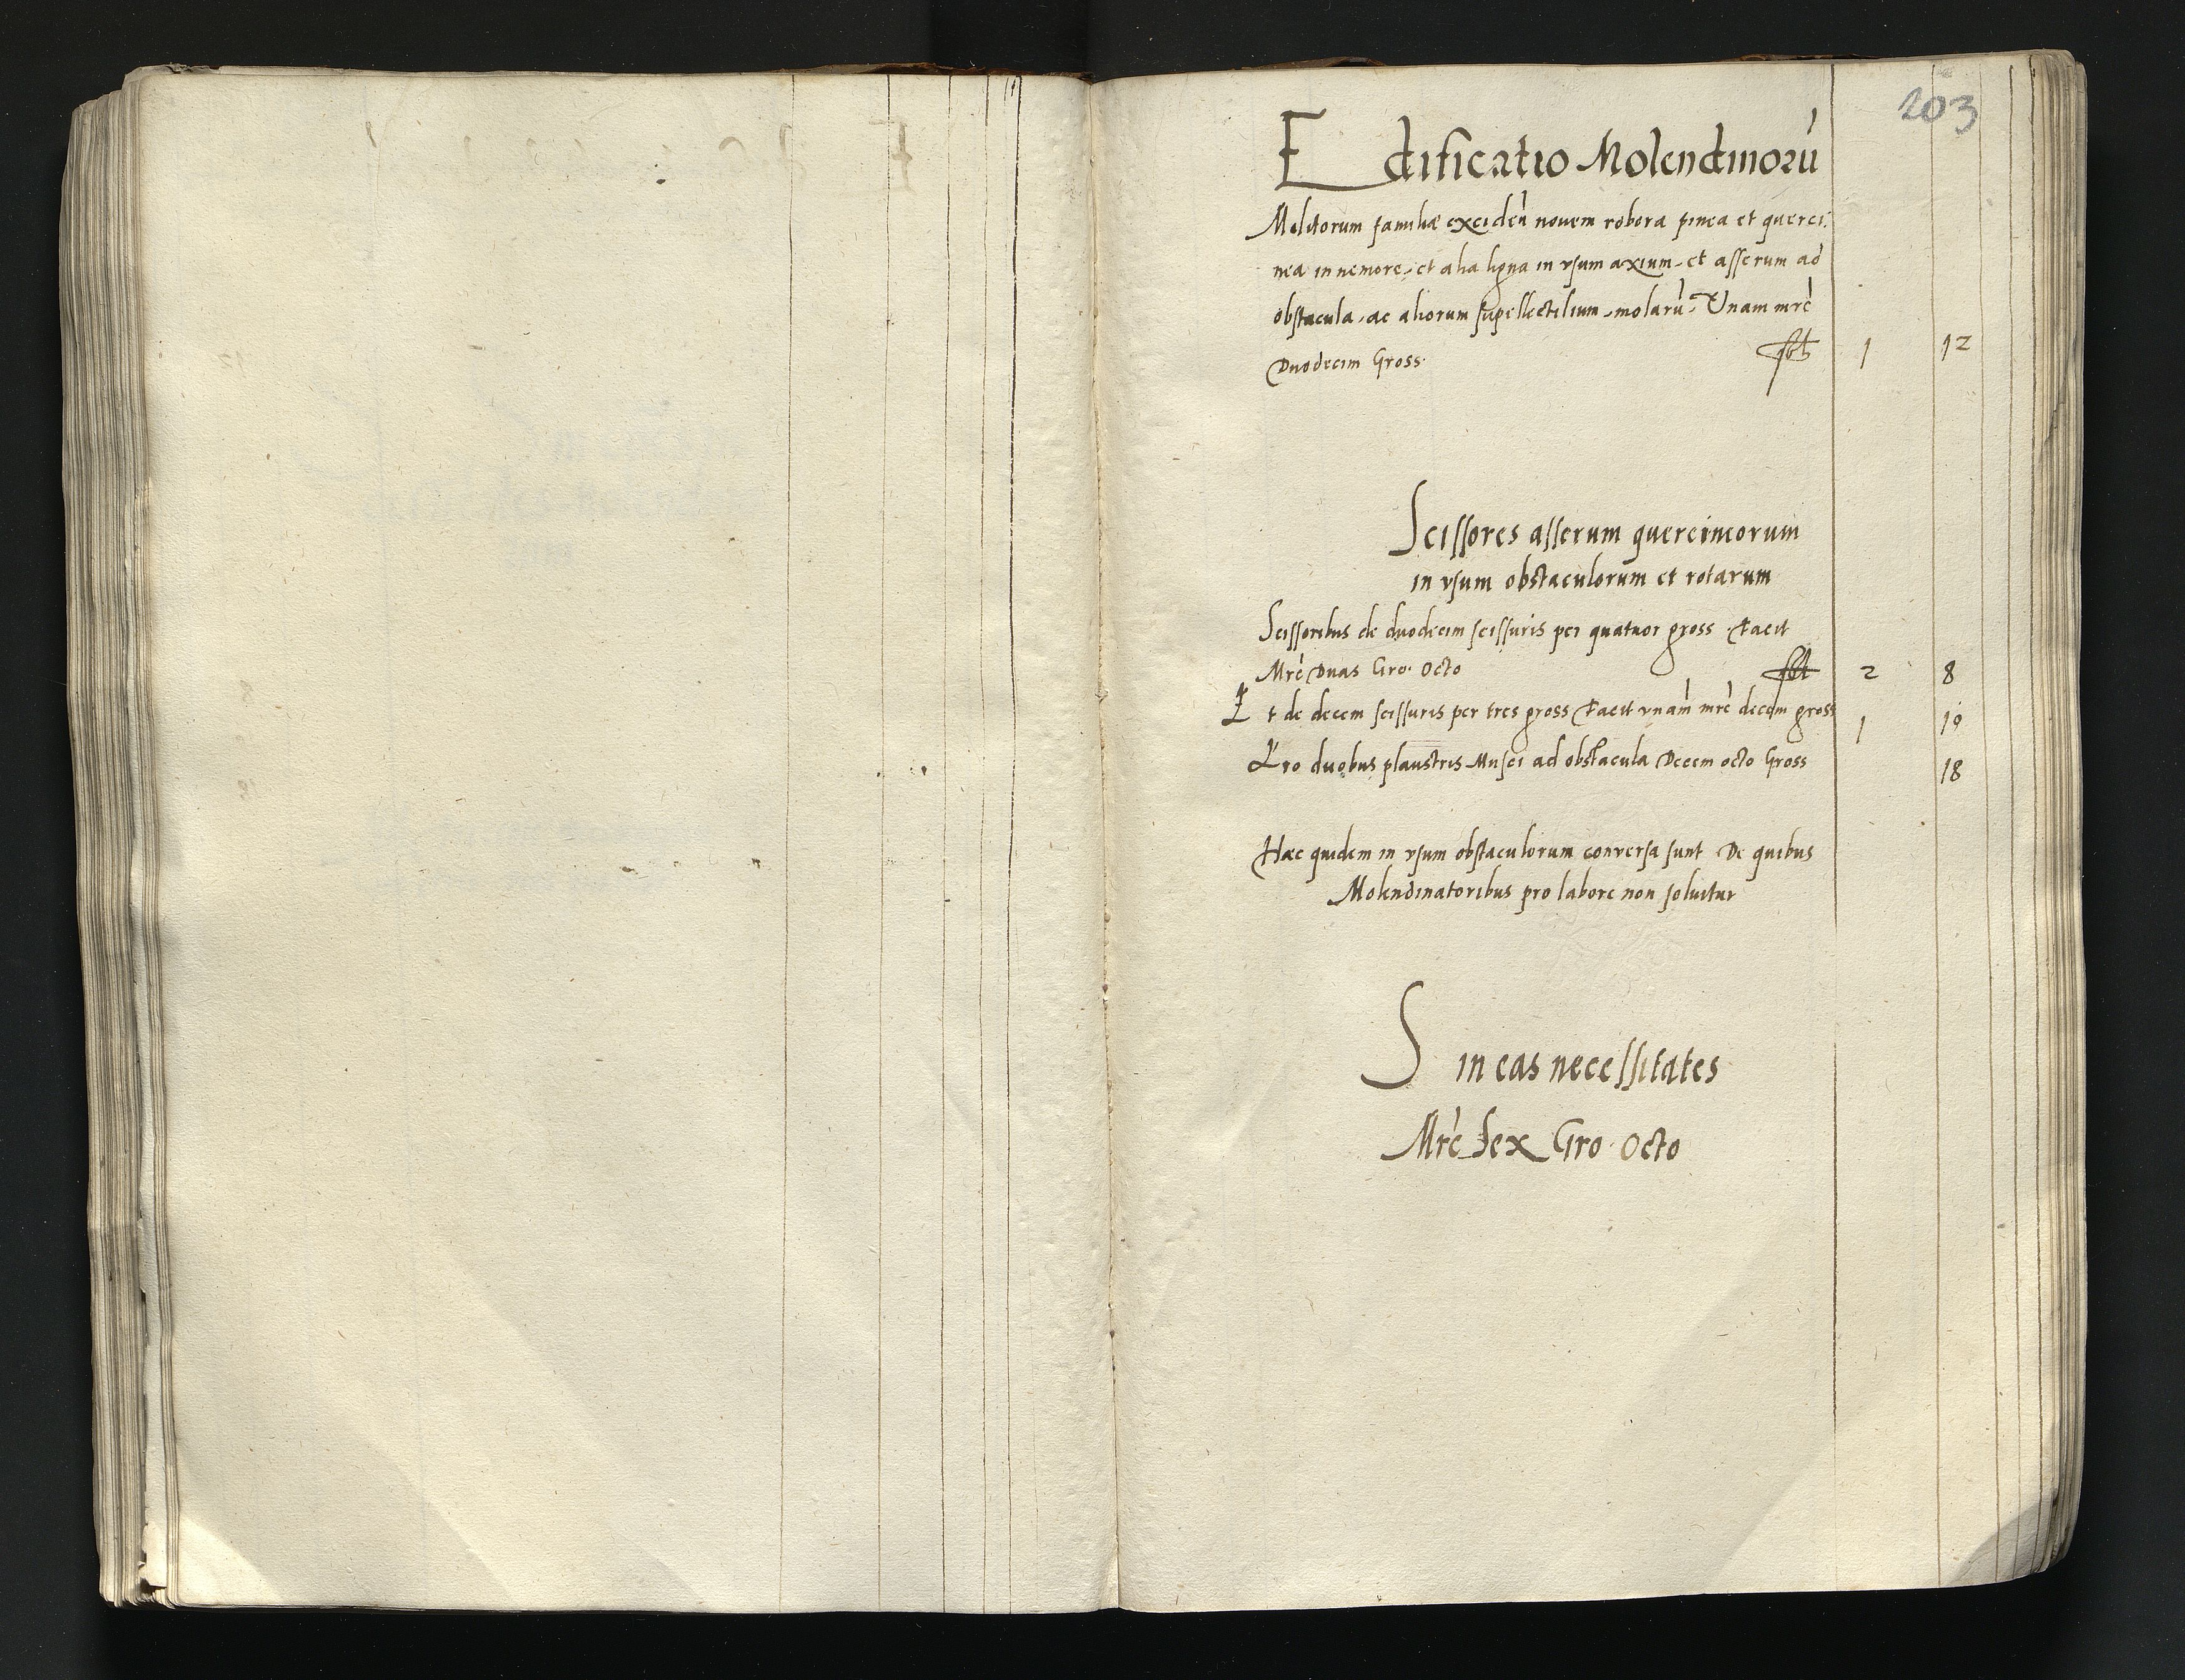 203
Edificatio Molendinorū
Molitorum familiæ exciden̄ novem robora pinea et querci:
nea in nemore, et alia ligna in vsum axium, et asserum ad
obstacula, ac aliorum supellectilium, molarū, Unam mrc̄
Duodecim Gross. 1 12
Scissores asserum quercineorum
in vsum obstaculorum et rotarum
Scissoribus de duodecim scissuris per quatuor gross Facit
Mrc̄ Duas Gro. Octo 2 8
Et de decem scissuris per tres gross Facit vnam̄ mrc̄ decem gross 1 10
Pro duobus plaustris Musci ad obstacula Decem octo Gross 18
Hæc quidem in vsum obstaculorum conversa sunt De quibus
Molendinatoribus pro labore non soluitur
S in eas necessitates
Mrc̄ Sex Gro. Octo